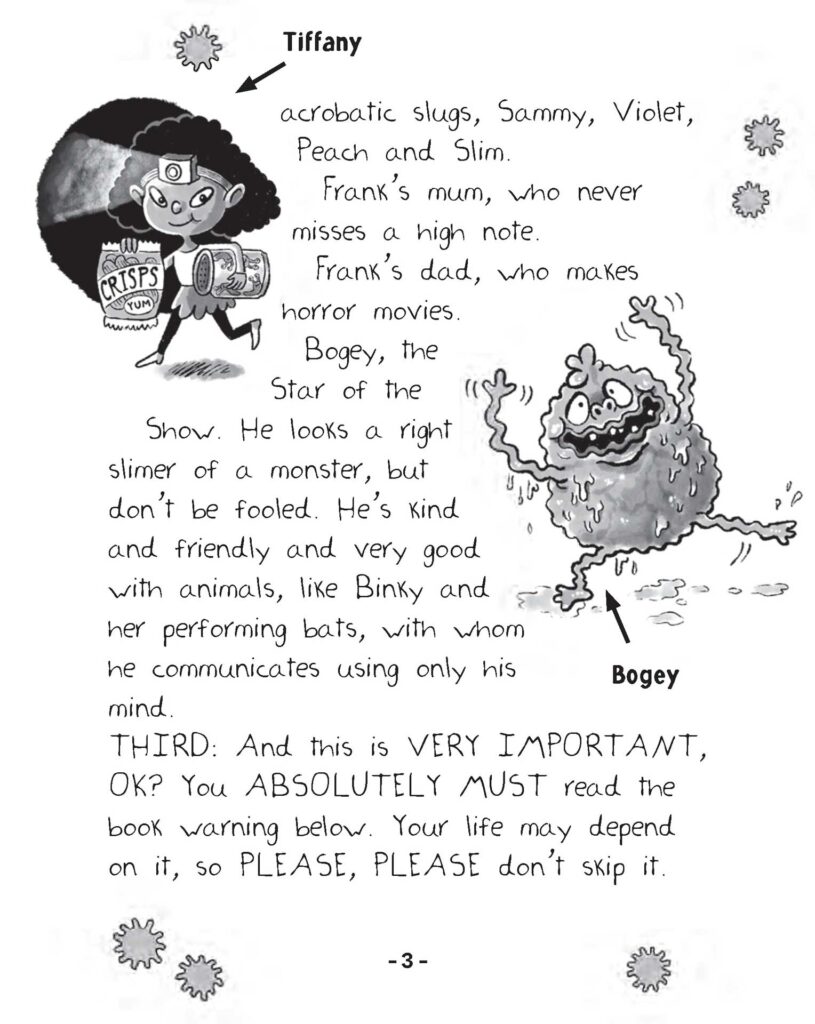 Tiffany
acrobatic slugs, Sammy, Violet,
Peach and Slim.
Frank's mum, who never
misses a high note.
CRISPS
YUM
Frank's dad, who makes
horror movies.
Bogey, the
Star of the
Show. He looks a right
slimer of a monster, but
don't be fooled. He's kind
and friendly and very good
with animals, like Binky and
her performing bats, with whom
he communicates using only his
mind.
Bogey
THIRD: And this is VERY IMPORTANT,
OK? You ABSOLUTELY MUST read the
book warning below. Your life may depend
on it, so PLEASE, PLEASE don't skip it.
-3-